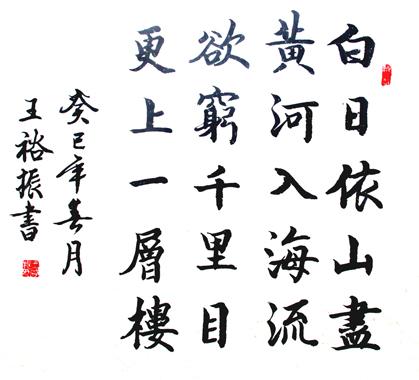 白日依山盡
黃河入海流
欲窮千里目
更上一層樓
癸巳年春月
王裕振書